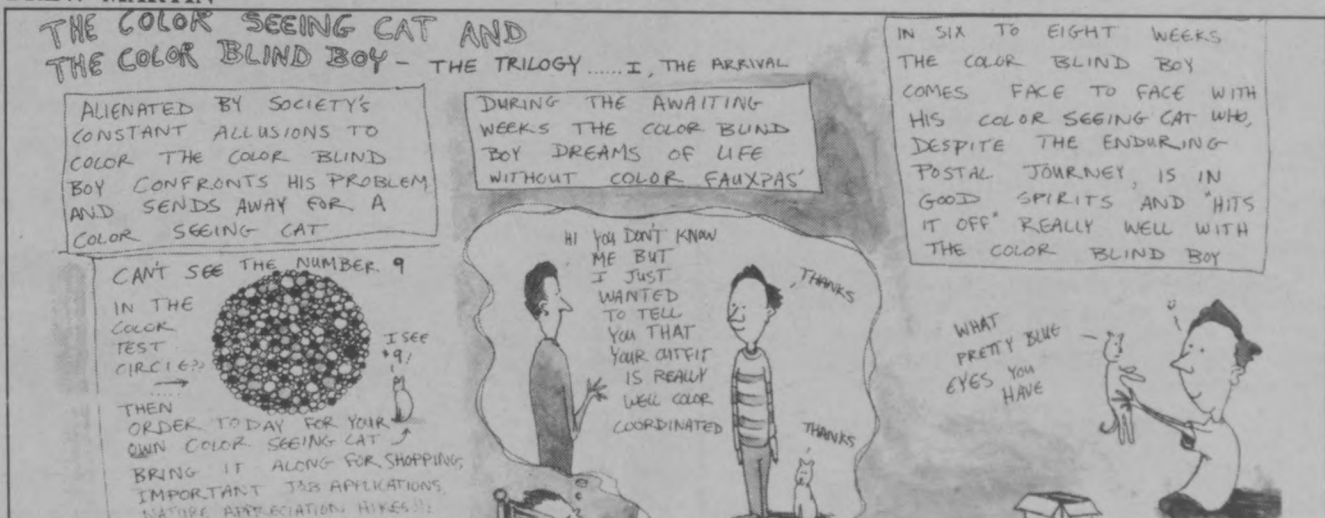 THE COLOR SEEING CAT AND
THE COLOR BLIND BOY - THE TRILOGY ...... I, THE ARRIVAL
ALIENATED BY SOCIETY'S
CONSTANT ALLUSIONS TO
COLOR THE COLOR BLIND
BOY CONFRONTS HIS PROBLEM
AND SENDS AWAY FOR A
COLOR SEEING CAT
CAN'T SEE THE NUMBER 9
IN THE
COLOR
TEST
CIRCLE??
THEN
ORDER TODAY FOR YOUR
OWN COLOR SEEING CAT
BRING IT ALONG FOR SHOPPING,
IMPORTANT JOB APPLICATIONS,
NATURE APPRECIATION HIKES!!!
I SEE
9!
DURING THE AWAITING
WEEKS THE COLOR BLIND
BOY DREAMS OF LIFE
WITHOUT COLOR FAUXPAS'
HI YOU DON'T KNOW
ME BUT
I JUST
WANTED
TO TELL
YOU THAT
YOUR OUTFIT
IS REALLY
WELL COLOR
COORDINATED
THANKS
THANKS
IN SIX TO EIGHT WEEKS
THE COLOR BLIND BOY
COMES FACE TO FACE WITH
HIS COLOR SEEING CAT WHO,
DESPITE THE ENDURING
POSTAL JOURNEY, IS IN
GOOD SPIRITS AND "HITS
IT OFF" REALLY WELL WITH
THE COLOR BLIND BOY
WHAT
PRETTY BLUE
EYES YOU
HAVE